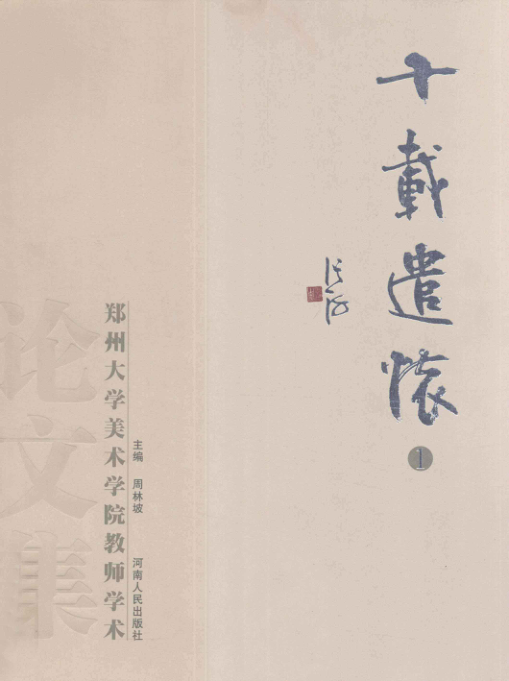 十載遣懷
1
主编 周林坡 河南人民出版社
郑州大学美术学院教师学术
论文集